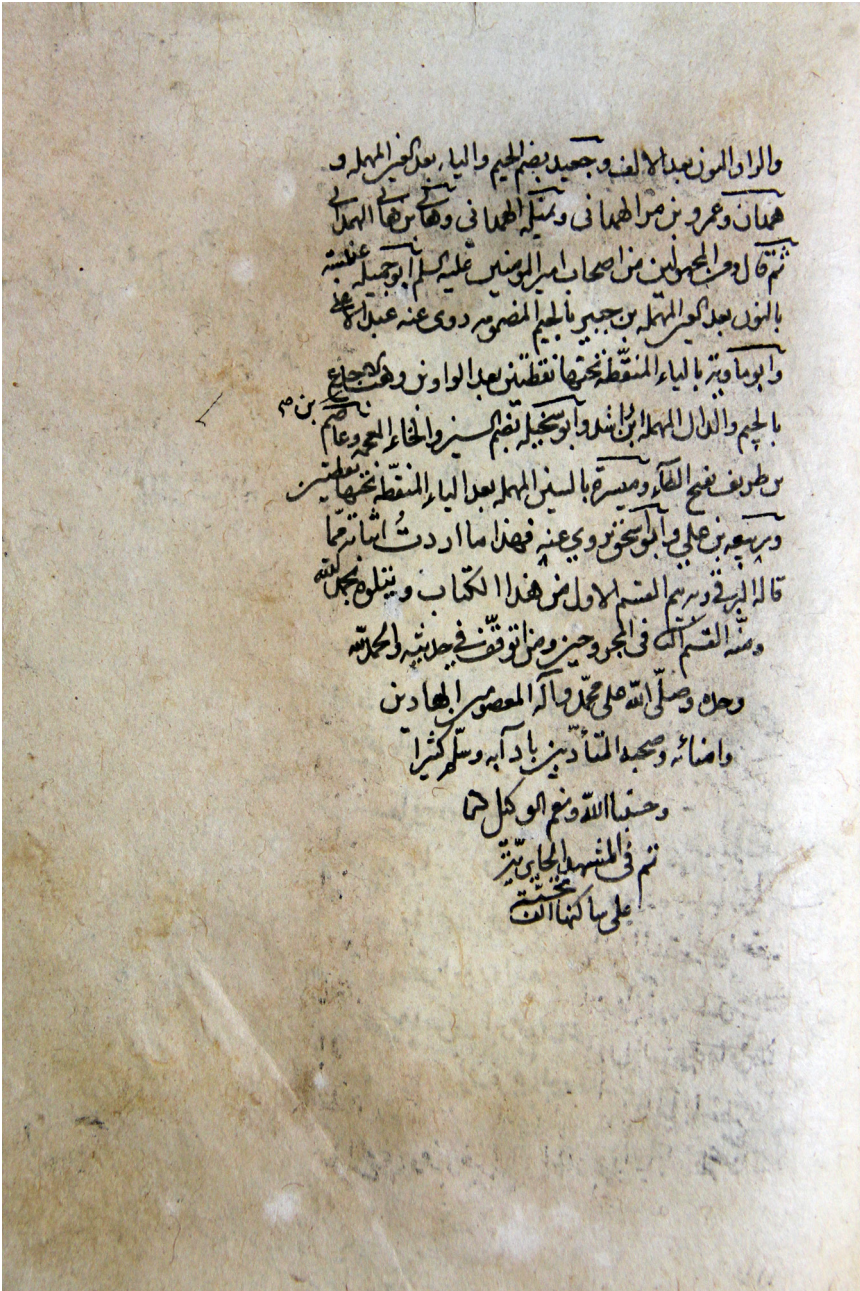 والواو النون بعد الالف وجعيد بضم الجيم والياء بعد العين المهملة و
همدان وعمرو بن مر الهمداني و الهمداني وهاني بن هاني الهمداني
ثم قال ومن المجهولين من اصحاب امير المومنين عليه السلم ابو جميله عنطبته
بالنون بعد العين المهمله بن جبير بالجيم المضمومه روى عنه عبد الاعلى
وابو ماويه بالياء المنقطة تحتها نقطتين بعد الواو بن وهب الاجدع
بالجيم والدال المهمله ابن راشد وابو سخيله بضم السين والخاء المعجمه وعاصم بن ص
بن طريف بفتح الطاء وميسرة بالسين المهمله بعد الياء المنقطه تحتها نقطتين
وربيعه بن علي وابو اسحق بروي عنه فهذا ما اردت اثباته مما
قاله البرقي وبه يتم القسم الاول من هذا الكتاب ويتلوه بحمد الله
ومنه القسم الثاني في المجروحين ومن اتوقف في حديثه والحمد لله
وحده وصلى الله على محمد وآله المعصومين الهادين
وامنائه وصحبه المتأدبين بادآبه وسلم كثيرا
وحسبنا الله ونعم الوكيل
تم في المشهد الحايرية
على ساكنها الف تحيته